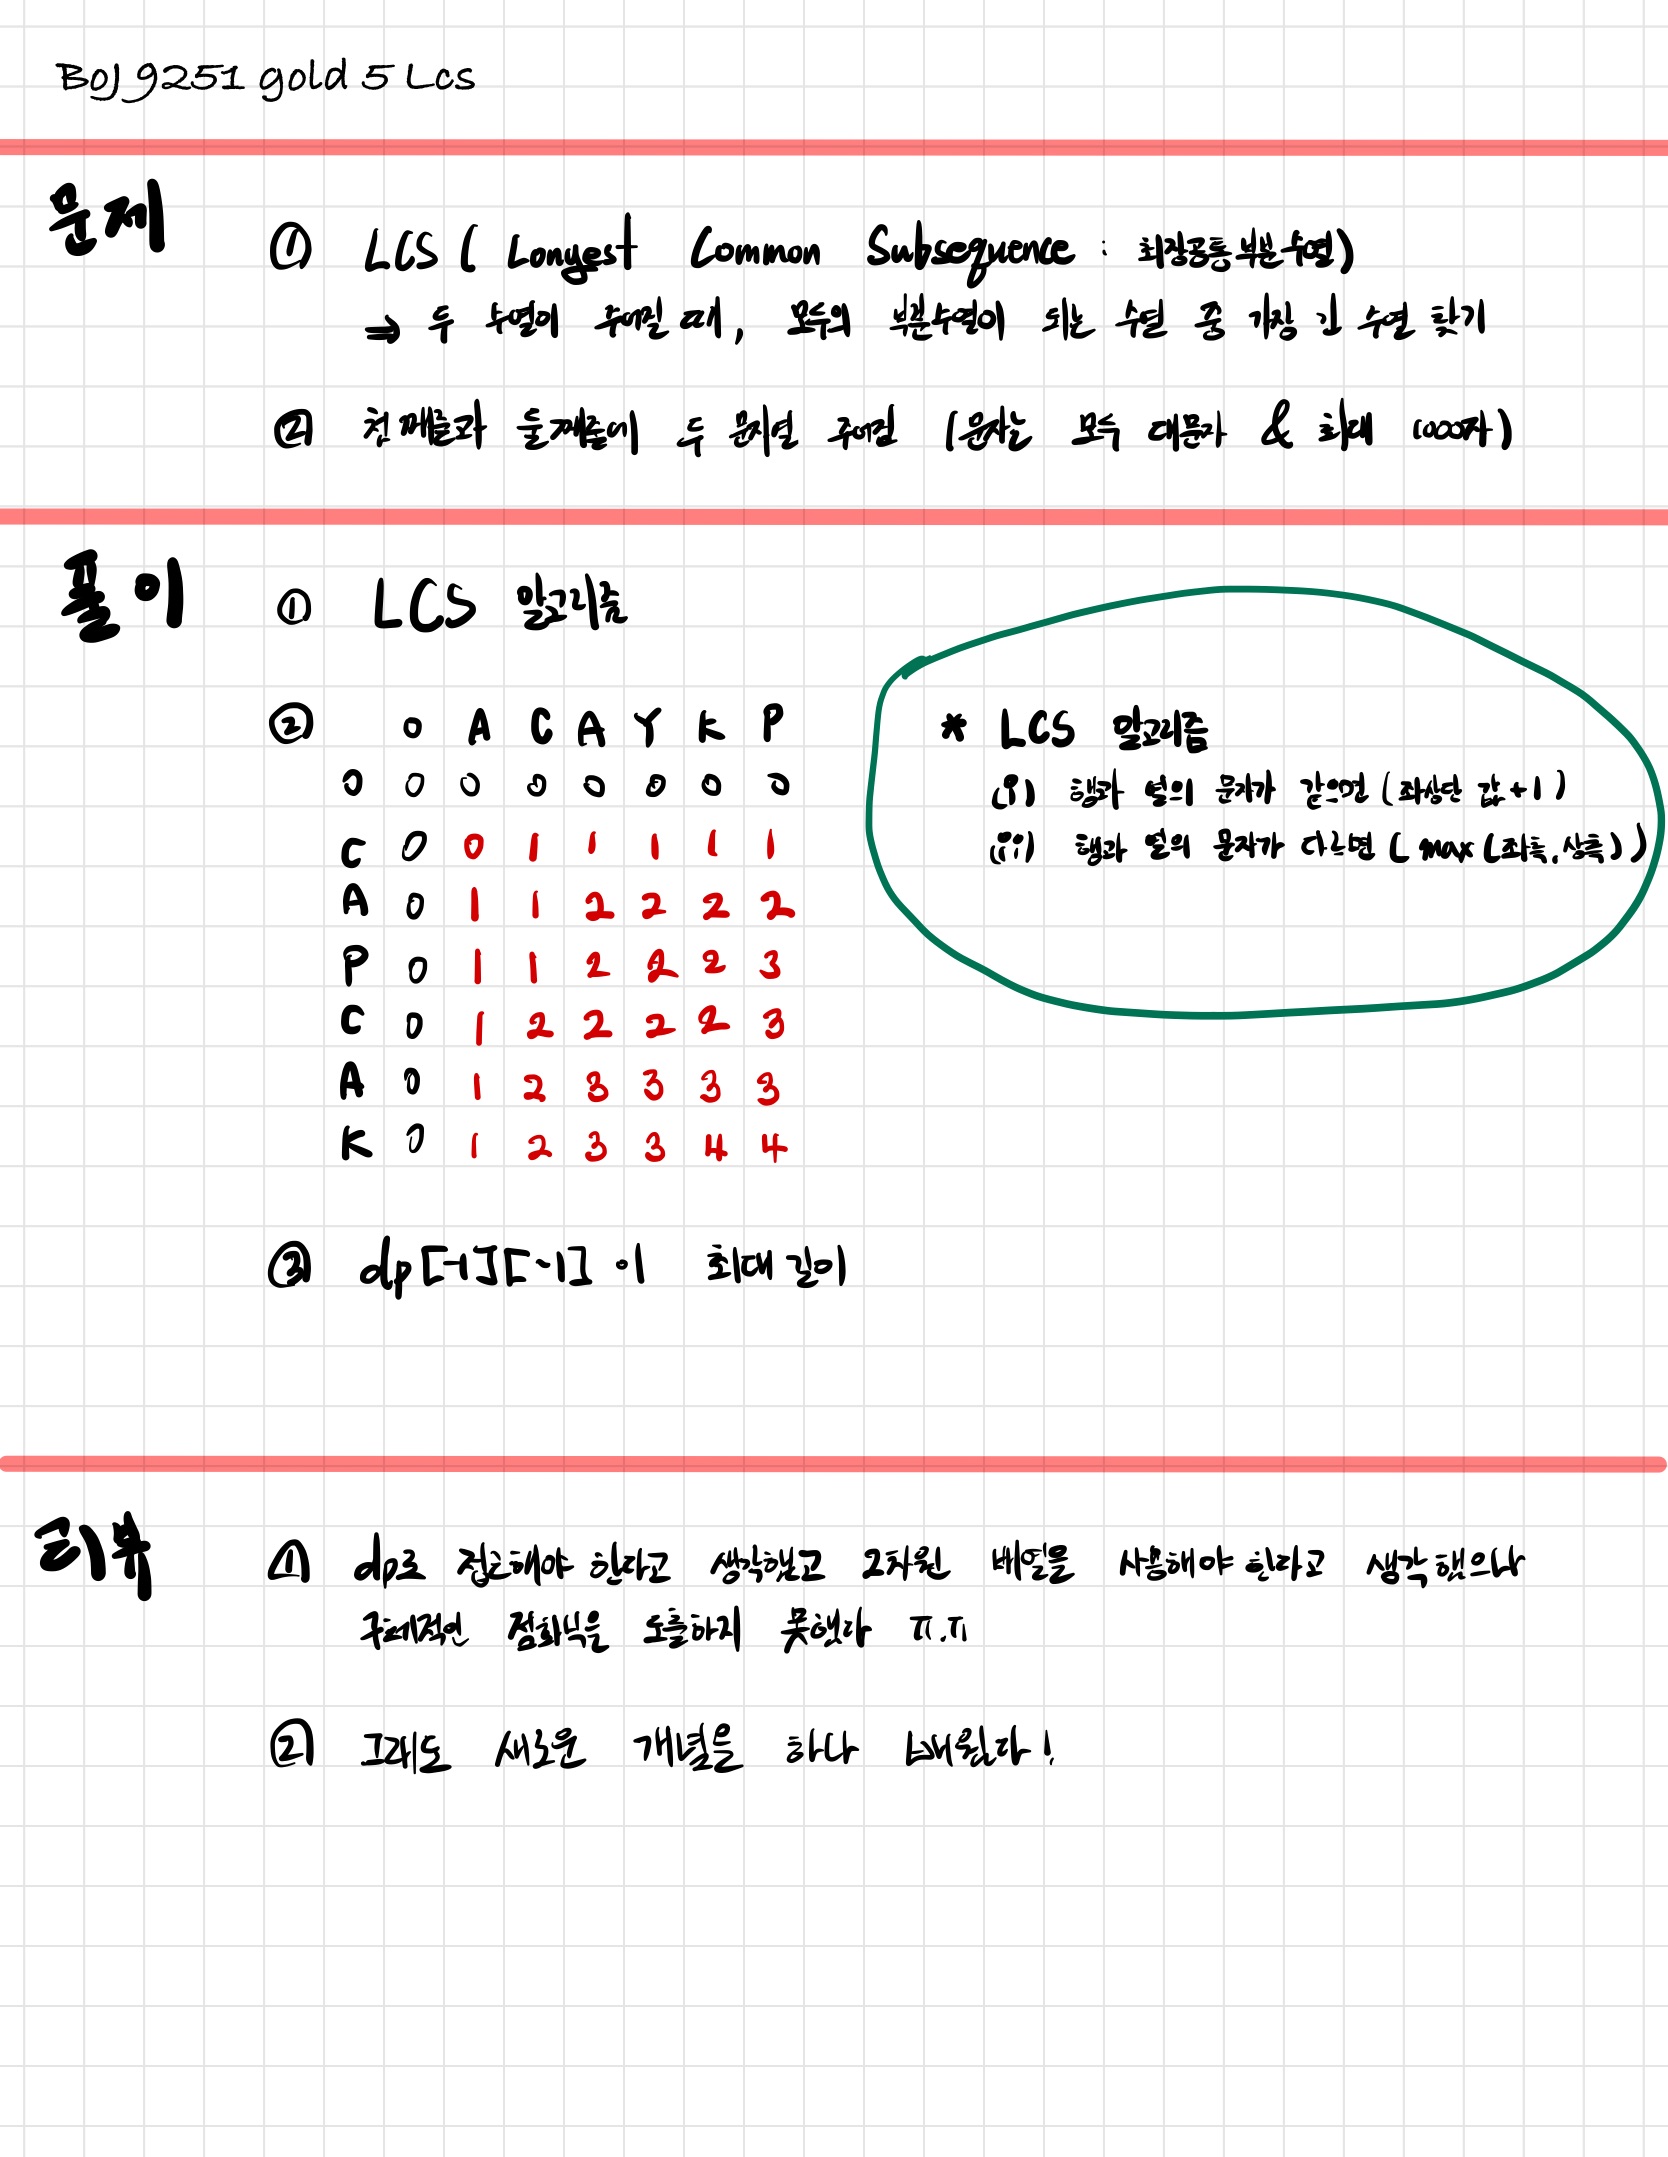 BOJ 9251 gold 5 Lcs
문제
① LCS ( Longest Common Subsequence : 최장공통부분수열)
⇒ 두 수열이 주어질 때, 모두의 부분수열이 되는 수열 중 가장 긴 수열 찾기
② 첫째줄과 둘째줄에 두 문자열 주어짐 (문자는 모두 대문자 & 최대 1000자)
풀이
① LCS 알고리즘
② 0 A C A Y K P
0 0 0 0 0 0 0 0
C 0 0 1 1 1 1 1
A 0 1 1 2 2 2 2
P 0 1 1 2 2 2 3
C 0 1 2 2 2 2 3
A 0 1 2 3 3 3 3
K 0 1 2 3 3 4 4
* LCS 알고리즘
(i) 행과 열의 문자가 같으면 (좌상단 값 +1)
(ii) 행과 열의 문자가 다르면 ( max (좌측, 상측) )
③ dp[-1][-1] 이 최대 길이
리뷰
① dp로 접근해야 한다고 생각했고 2차원 배열을 사용해야 한다고 생각했으나
구체적인 점화식을 도출하지 못했다 ㅠ.ㅠ
② 그래도 새로운 개념을 하나 배웠다!